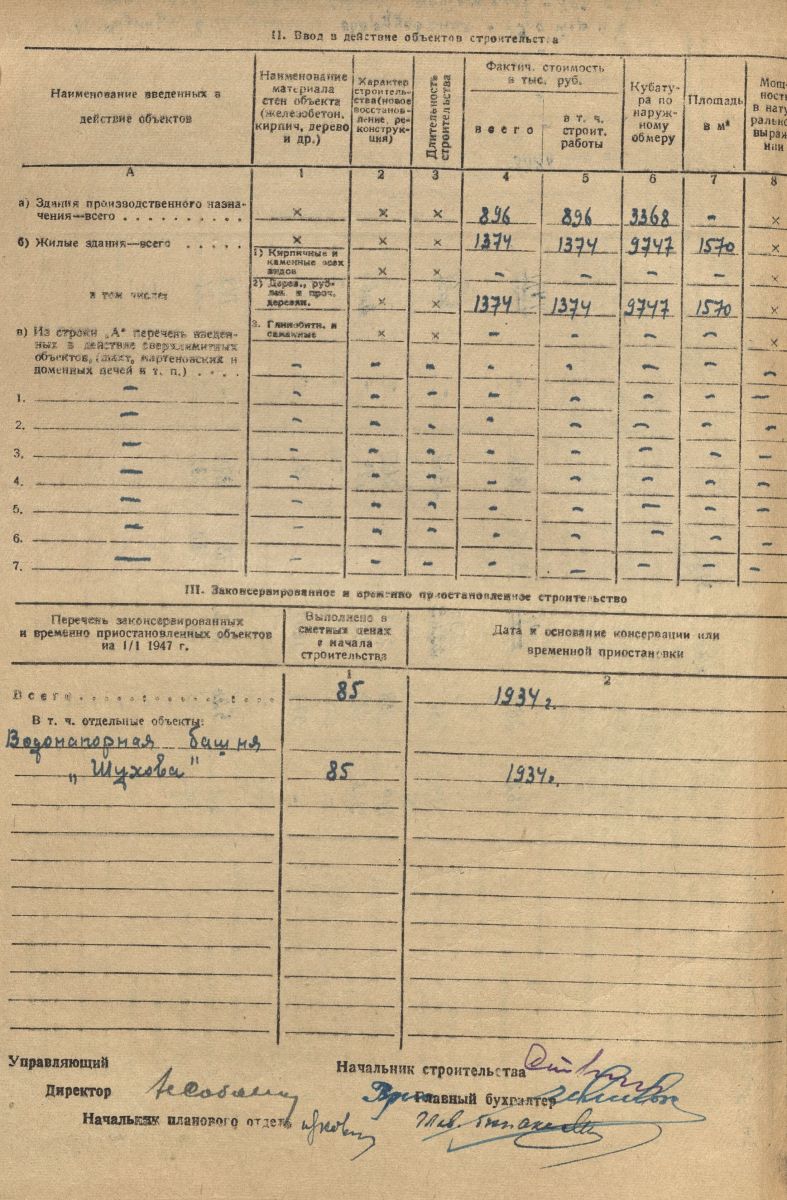 II. Ввод в действие объектов строительства
Наименование введенных в
действие объектов
Наименование
материала
стен объекта
(железобетон,
кирпич, дерево
и др.)
Характер
строитель-
ства (новое
восстанов-
ление, ре-
конструк-
ция)
Длительность
строительства
Фактич. стоимость
в тыс. руб.
всего
в т. ч.
строит.
работы
Кубату-
ра по
наруж-
ному
обмеру
Площадь
в м²
Мощ-
ность
в нату
рально
выраж
нии
А 1 2 3 4 5 6 7 8
а) Здания производственного назна-
чения—всего . . . . . . . . . . × × × 896 896 3368 – ×
б) Жилые здания—всего . . . . . × × × 1374 1374 9747 1570 ×
1) Кирпичные и
каменные всех
видов × × – – – – ×
в том числе
2) Дерев., руб-
лен. и проч.
деревян. × × 1374 1374 9747 1570 ×
3. Глинобитн. и
саманные × × – – – – ×
в) Из строки „А" перечень введен-
ных в действие сверхлимитных
объектов, (шахт, мартеновских и
доменных печей и т. п.) . . . . – – – – – – – –
1. – – – – – – – – –
2. – – – – – – – – –
3. – – – – – – – – –
4. – – – – – – – – –
5. – – – – – – – – –
6. – – – – – – – – –
7. – – – – – – – – –
III. Законсервированное и временно приостановленное строительство
Перечень законсервированных
и временно приостановленных объектов
на 1/1 1947 г.
Выполнено в
сметных ценах
с начала
строительства
Дата и основание консервации или
временной приостановки
1 2
Всего . . . . . . . . . . . . . . 85 1934 г.
В т. ч. отдельные объекты:
Водонапорная башня
„Шухова" 85 1934 г.
Управляющий
Начальник строительства
Директор
Главный бухгалтер
Начальник планового отдела